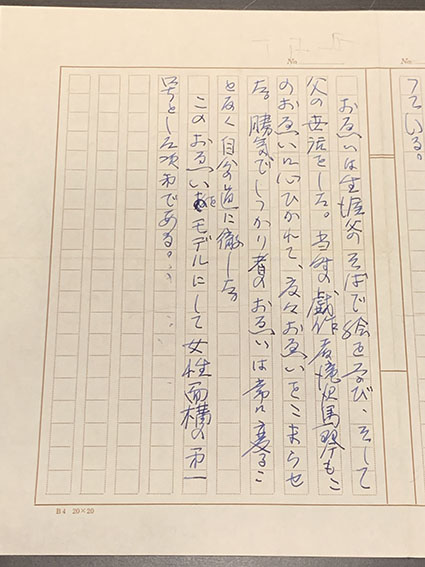 っている。
おゑいは生涯父のそばで絵を学び、そして
父の世話をした。当時の戯作者滝沢馬琴もこ
のおゑいに心ひかれて、度々おゑいをこまらせ
た。勝気でしっかり者のおゑいは常に変るこ
となく自分の道に徹した。
このおゑいをモデルにして女性面構の第一
号とした次第である。
No
No
B4 20×20